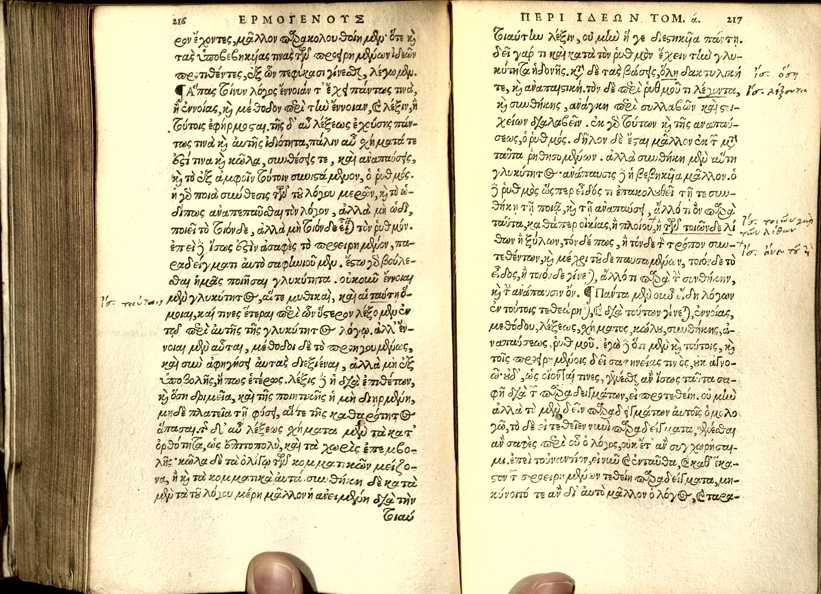 216 ΕΡΜΟΓΕΝΟΥΣ
ρον ἔχοντες, μᾶλλον παρακολουθοίημεν ὅτε καὶ
τὰς ὑποβεβηκυίας τινὰς τῶν προειρημένων ἰδεῶν
προτιθέντες, ἐξ ὧν πεφύκασι γίνεσθαι, λέγωμεν.
¶ Ἅπας τοίνυν λόγος ἔννοιάν τε ἔχει πάντως τινὰ,
ἢ ἐννοίας, καὶ μέθοδον περὶ τὴν ἔννοιαν, καὶ λέξιν, ἣ
τούτοις ἐφήρμοσται. τῆς δ' αὖ λέξεως ἐχούσης πάν-
τως τινὰ καὶ αὐτῆς ἰδιότητα, πάλιν αὖ σχήματά τέ
ἐστί τινα καὶ κῶλα, συνθέσεις τε, καὶ ἀναπαύσεις,
καὶ τὸ ἐξ ἀμφοῖν τούτοιν συνιστάμενον, ὁ ῥυθμός.
ἡ γὰρ ποιὰ σύνθεσις τῶν τοῦ λόγου μερῶν, καὶ τὸ ὡ-
δί πως ἀναπεπαῦσθαι τὸν λόγον, ἀλλὰ μὴ ὡδὶ,
ποιεῖ τὸ τοιόνδε, ἀλλὰ μὴ τοιόνδε εἶναι τὸν ῥυθμόν.
ἐπεὶ δὲ ἴσως ἐστὶν ἀσαφὲς τὸ προειρημένον, πα-
ραδείγματι αὐτὸ σαφηνιοῦμεν. ἔστω γὰρ βούλε-
σθαι ἡμᾶς ποιῆσαι γλυκύτητα. οὐκοῦν ἔννοιαι
μὲν γλυκύτητος, αἵ τε μυθικαὶ, καὶ αἱ ταύτῃ ὅ-
μοιαι, καί τινες ἕτεραι περὶ ὧν ὕστερον λέξομεν ἐν
τῷ περὶ αὐτῆς τῆς γλυκύτητος λόγῳ. ἀλλ' ἔν-
νοιαι μὲν αὗται, μέθοδοι δὲ τὸ προηγουμένως,
καὶ σὺν ἀφηγήσει αὐτὰς διεξιέναι, ἀλλὰ μὴ ἐξ
ὑποβολῆς, ἤ πως ἑτέρως. λέξις δὲ ἡ διὰ ἐπιθέτων,
καὶ ὅση δριμεῖα, καὶ τῆς ποιητικῆς ἡ μὴ διῃρμένη,
μηδὲ πλατεῖα τῇ φύσει, αἵ τε τῆς καθαρότητος
ἅπασαι. τῆς δ' αὖ λέξεως σχήματα μὲν τὰ κατ'
ὀρθότητα, ὡς ἐπιτοπολὺ, καὶ τὰ χωρὶς ἐπεμβο-
λῆς· κῶλα δὲ τὰ ὀλίγῳ τῶν κομματικῶν μείζο-
να, ἢ καὶ τὰ κομματικὰ αὐτά. συνθήκη δὲ κατὰ
μὲν τὰ τοῦ λόγου μέρη μᾶλλον ἡ ἀνειμένη διὰ τὴν
τοιαύ
ΠΕΡΙ ΙΔΕΩΝ ΤΟΜ. ά. 217
τοιαύτην λέξιν, οὐ μὴν ἥ γε διεστηκυῖα πάντη.
δεῖ γάρ τι καὶ κατὰ τὸν ῥυθμὸν ἔχειν τὴν γλυ-
κύτητα ἡδονῆς. κατὰ δὲ τὰς βάσεις, ὅλη δακτυλική
τε, καὶ ἀναπαιστική. τὸν δὲ περὶ ῥυθμοῦ τι λέγοντα,
καὶ συνθήκης, ἀνάγκη περὶ συλλαβῶν καὶ στοι-
χείων διαλαβεῖν. ἐκ γὰρ τούτων καὶ τῆς ἀναπαύ-
σεως, ὁ ῥυθμός. δῆλον δὲ ἔσται μᾶλλον ἐκ τῶν μετὰ
ταῦτα ῥηθησομένων. ἀλλὰ συνθήκη μὲν αὕτη
γλυκύτητος· ἀνάπαυσις δὲ ἡ βεβηκυῖα μᾶλλον. ὁ
δὲ ῥυθμὸς ὥσπερ εἶδός τι ἐπακολουθεῖ τῇ τε συν-
θήκῃ τῇ ποιᾷ, καὶ τῇ ἀναπαύσει, ἄλλό τι ὂν παρὰ
ταῦτα, καθάπερ οἰκίας, ἢ πλοίου, ἢ τῶν τοιῶνδε λί-
θων ἢ ξύλων, τόνδε πως, ἢ τόνδε τὸν τρόπον συν-
τεθέντων, καὶ μέχρι τοῦδε παυσαμένων, τοιόνδε τὸ
εἶδος, ἢ τοιόνδε γίνεται, ἄλλό τι παρὰ τὴν συνθήκην,
καὶ τὴν ἀνάπαυσιν ὄν. ¶ Πάντα μὲν οὖν εἴδη λόγων
ἐν τούτοις τεθεώρηται, καὶ διὰ τούτων γίνεται, ἐννοίας,
μεθόδου, λέξεως, σχήματος, κώλου, συνθήκης, ἀ-
ναπαύσεως, ῥυθμοῦ. ἐγὼ δὲ ὅτι μὲν καὶ τούτοις, καὶ
τοῖς προειρημένοις δεῖ σαφηνείας τινὸς, οὐκ ἀγνο-
ῶ· οὐδ', ὡς οἴονταί τινες, γενέσθαι ἂν ἴσως ταῦτα σα-
φῆ διὰ τῶν παραδειγμάτων, εἰ προτεθείη. οὐ μὴν
ἀλλὰ τὸ μὲν δεῖν παραδειγμάτων αὐτοῖς ὁμολο-
γῶ, τὸ δὲ εἰ τεθεῖεν νυνὶ παραδείγματα, γενέσθαι
ἂν σαφὲς περὶ οὗ ὁ λόγος, οὐκέτ' ἂν συγχωρήσαι-
μι. ἐπεὶ τοὐναντίον, εἰ νῦν ἐνταῦθα, καθ' ἕκα-
στον τῶν προειρημένων τεθείη παραδείγματα, μη-
κύνοιτό τε ἂν δι' αὐτὸ μᾶλλον ὁ λόγος, καὶ ταρα-